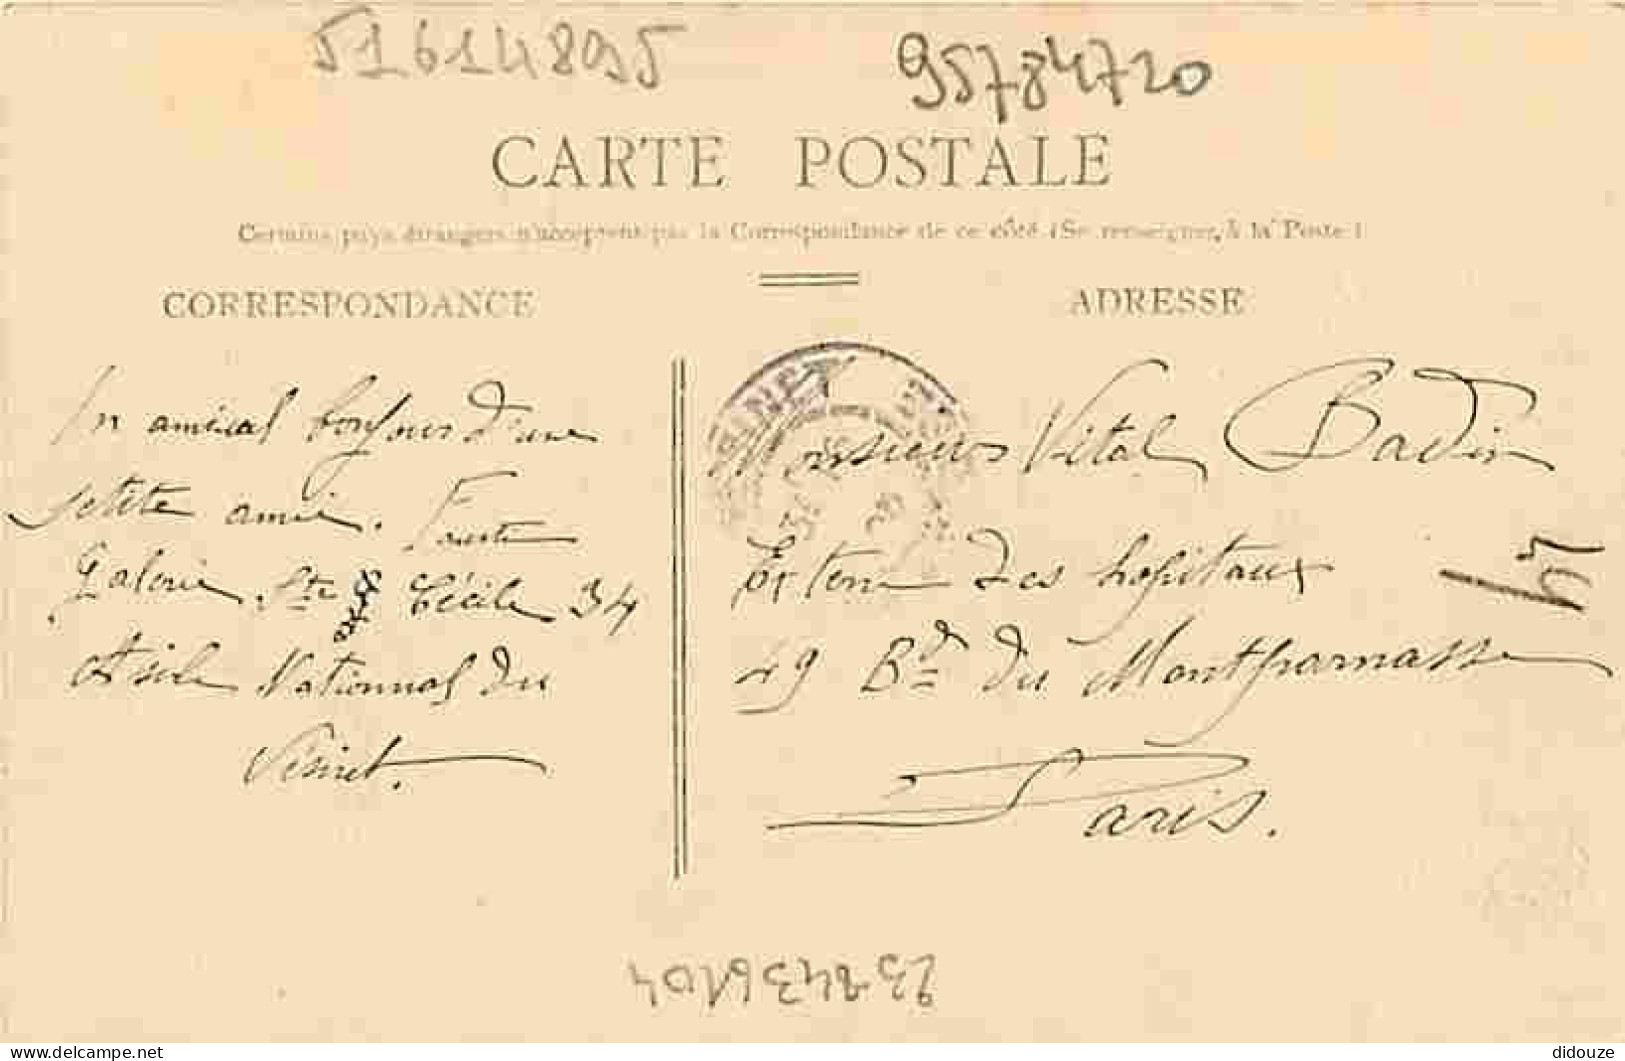 5161148095
95784720
CARTE POSTALE
Certains pays étrangers n'acceptent pas la Correspondance de ce côté (Se renseigner, à la Poste)
CORRESPONDANCE
ADRESSE
Un amical bonjour d'une
petite amie.
Galerie Ste Cécile 34
Asile National du
Vésinet.
Monsieur Vital Badin
Externe des hopitaux
49 Bd du Montparnasse
Paris.
didouze
www.delcampe.net